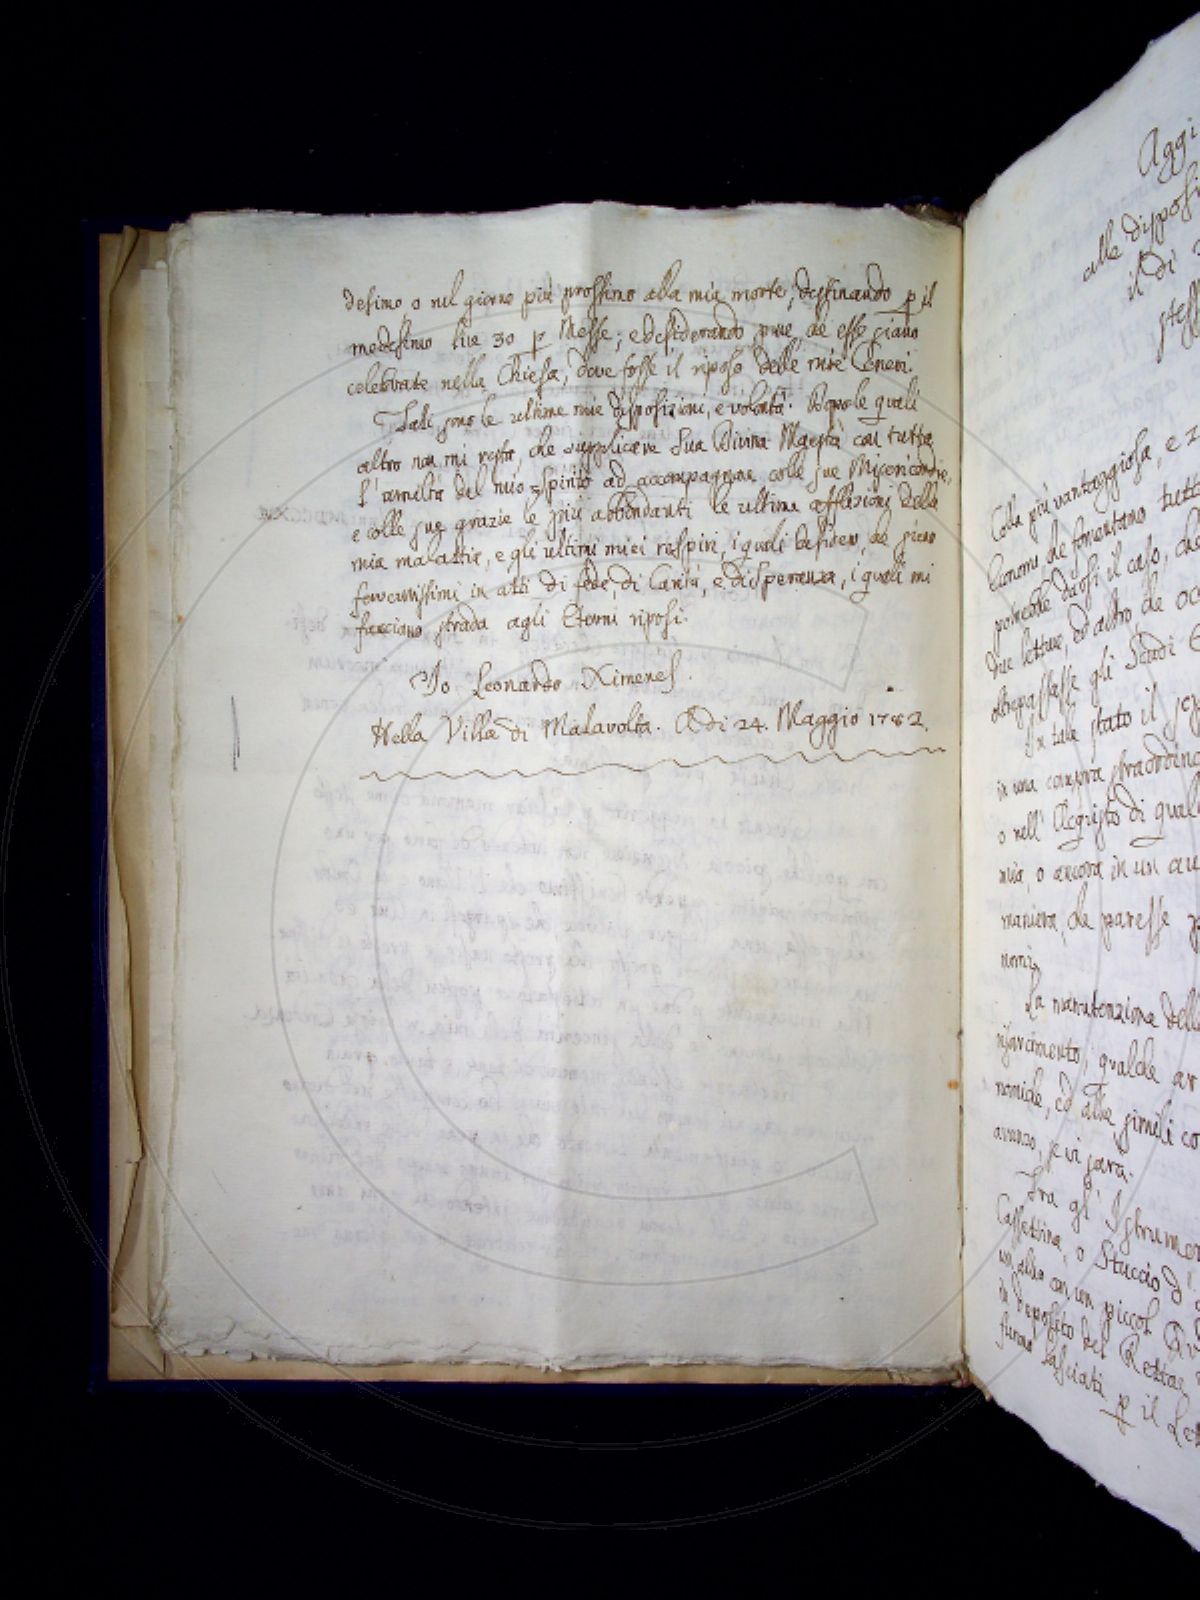 desimo, o nel giorno piú prossimo alla mia morte, destinando p il
medesimo lire 30 p Messe; e desiderando pure, che esse siano
celebrate nella Chiesa, dove fosse il riposo delle mie Ceneri.
Tali sono le ultime mie disposizioni, e volontà. Dopo le quali
altro non mi resta, che supplicare Sua Divina Maestà con tutta
l'umiltà del mio spirito ad accompagnare colle sue Misericordie,
e colle sue grazie le piú abbondanti le ultime afflizioni della
mia malattia, e gli ultimi miei respiri, i quali desidero, che sieno
ferventissimi in atti di fede, di Carità, e di speranza, i quali mi
facciano strada agli Eterni riposi.
Io Leonardo Ximenes.
Nella Villa di Malavolta. A di 24. Maggio 1782.
Aggi
alle disposi
il di
stess
Colla più vantaggiosa, e
Canoni che fomentano tutt
potrebbe darsi il caso, che
due letture, ed altro, che oc
oltrepassasse gli Scudi
In tale stato il
in una compra
o nell' Acquisto di qual
mia, o ancora in un au
maniera, che paresse
nomi.
La manutenzione dell
risarcimento, qualche ar
nomiche, ed altre simili co
avanzo, se vi sarà.
Tra gl' Istrumen
Cassettina, o Stuccio d'
un altro con un piccol
in deposito del Rettor
furno lasciati p il Let